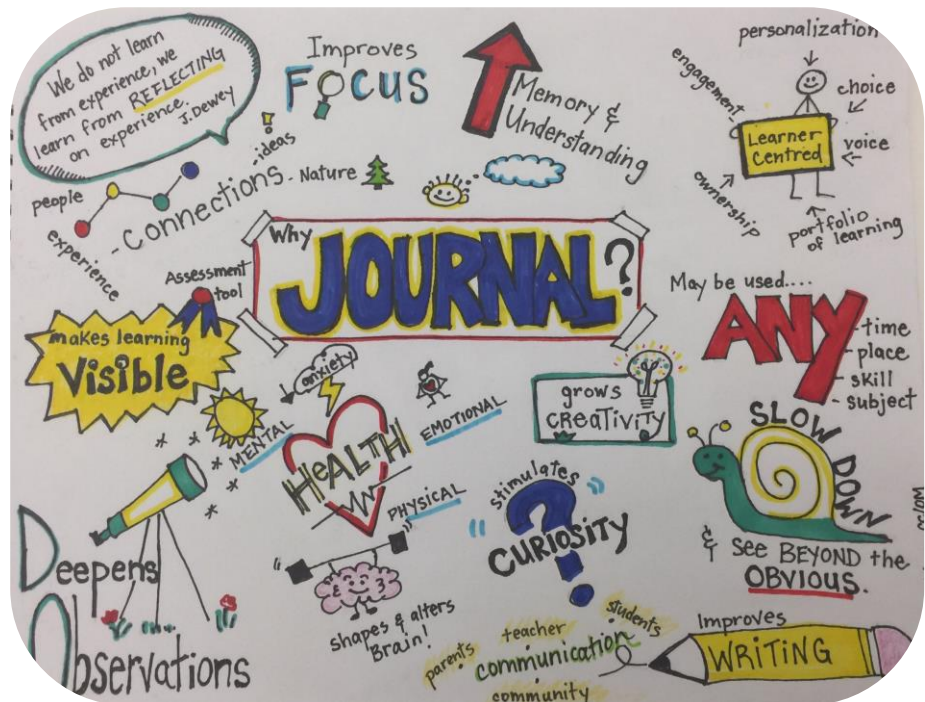 We do not learn
from experience, we
learn from REFLECTING
on experience.
J. Dewey
Improves
FOCUS
Memory &
Understanding
personalization
engagement
choice
Learner
Centred
voice
ownership
portfolio
of learning
people
experience
-connections-
-ideas
Nature
Why
JOURNAL?
Assessment
tool
makes learning
Visible
May be used....
ANY
-time
-place
-skill
-subject
anxiety
MENTAL
HEALTH
EMOTIONAL
PHYSICAL
grows
CREATIVITY
SLOW
DOWN
& see BEYOND the
OBVIOUS.
stimulates
CURIOSITY
Deepens
Observations
shapes & alters
Brain!
parents
teacher
students
communication
community
Improves
WRITING